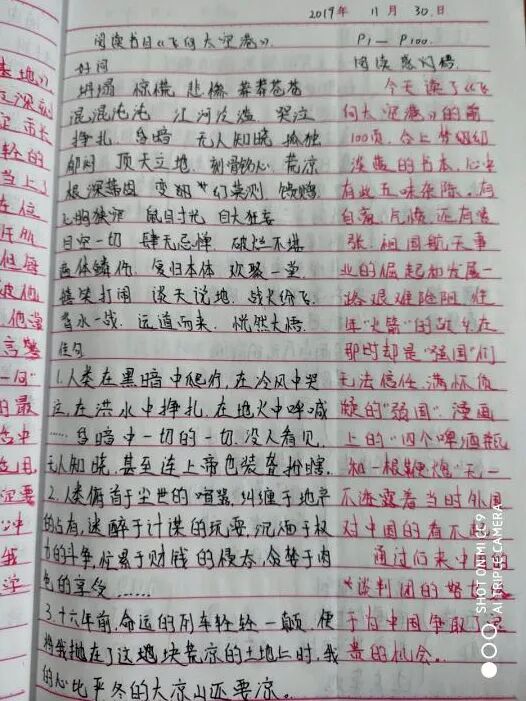 2019年 11月 30日
阅读书目《飞向太空港》.
P1—P100.
好词
坍塌 惊慌 悲惨 莽莽苍苍
混混沌沌 江河泛滥 哭泣
挣扎 昏暗 无人知晓 孤独
郁闷 顶天立地 刻骨铭心 荒凉
根深蒂固 变幻莫测
目空一切 肆无忌惮 破烂不堪
遍体鳞伤 复归本体 欢聚一堂
嬉笑打闹 谈天说地 战火纷飞
背水一战 远道而来 恍然大悟
佳句
1.人类在黑暗中爬行,在冷风中哭
泣,在洪水中挣扎,在地火中呼喊
……昏暗中一切的一切,没人看见,
无人知晓,甚至连上帝也装聋扮瞎.
2.人类俯首于尘世的喧嚣,纠缠于地产
的占有,迷醉于计谋的玩耍,沉湎于权
力的斗争,忙累于财钱的积存,贪婪于肉
色的享受……
3.十六年前,命运的列车轻轻一颠,便
将我抛在了这块荒凉的土地上时,我
的心比严冬的大凉山还要凉。
阅读感悟
今天读了《飞
向太空港》的前
100页,合上
淡蓝的书本,心中
有些五味杂陈.有
自豪、气愤,还有紧
张.祖国航天事
业的崛起和发展一
路艰难险阻,往
年"火箭"的战斗在
那时却是"强国"们
无法信任、满怀质
疑的"弱国".漫画
上的"四个啤酒瓶
和一根鞭炮"无一
不流露着当时外国
对中国的看不起.
通过们来中国的
"谈判团的努力
于为中国争取了宝
贵的机会。
SHOT ON MI CC 9
AI TRIPLE CAMERA